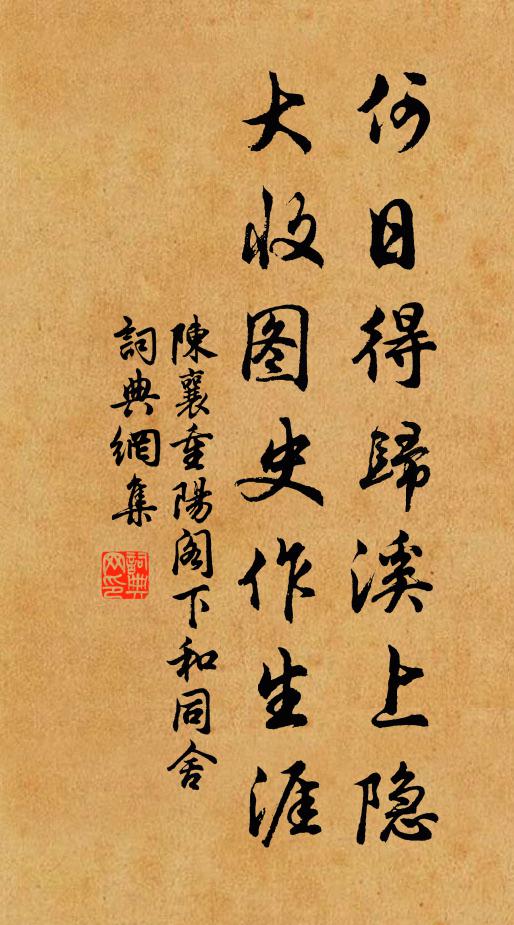 何日得歸溪上隐
大收图史作生涯
陳襄重陽阁下和同舍
詞典網集
詞典網印